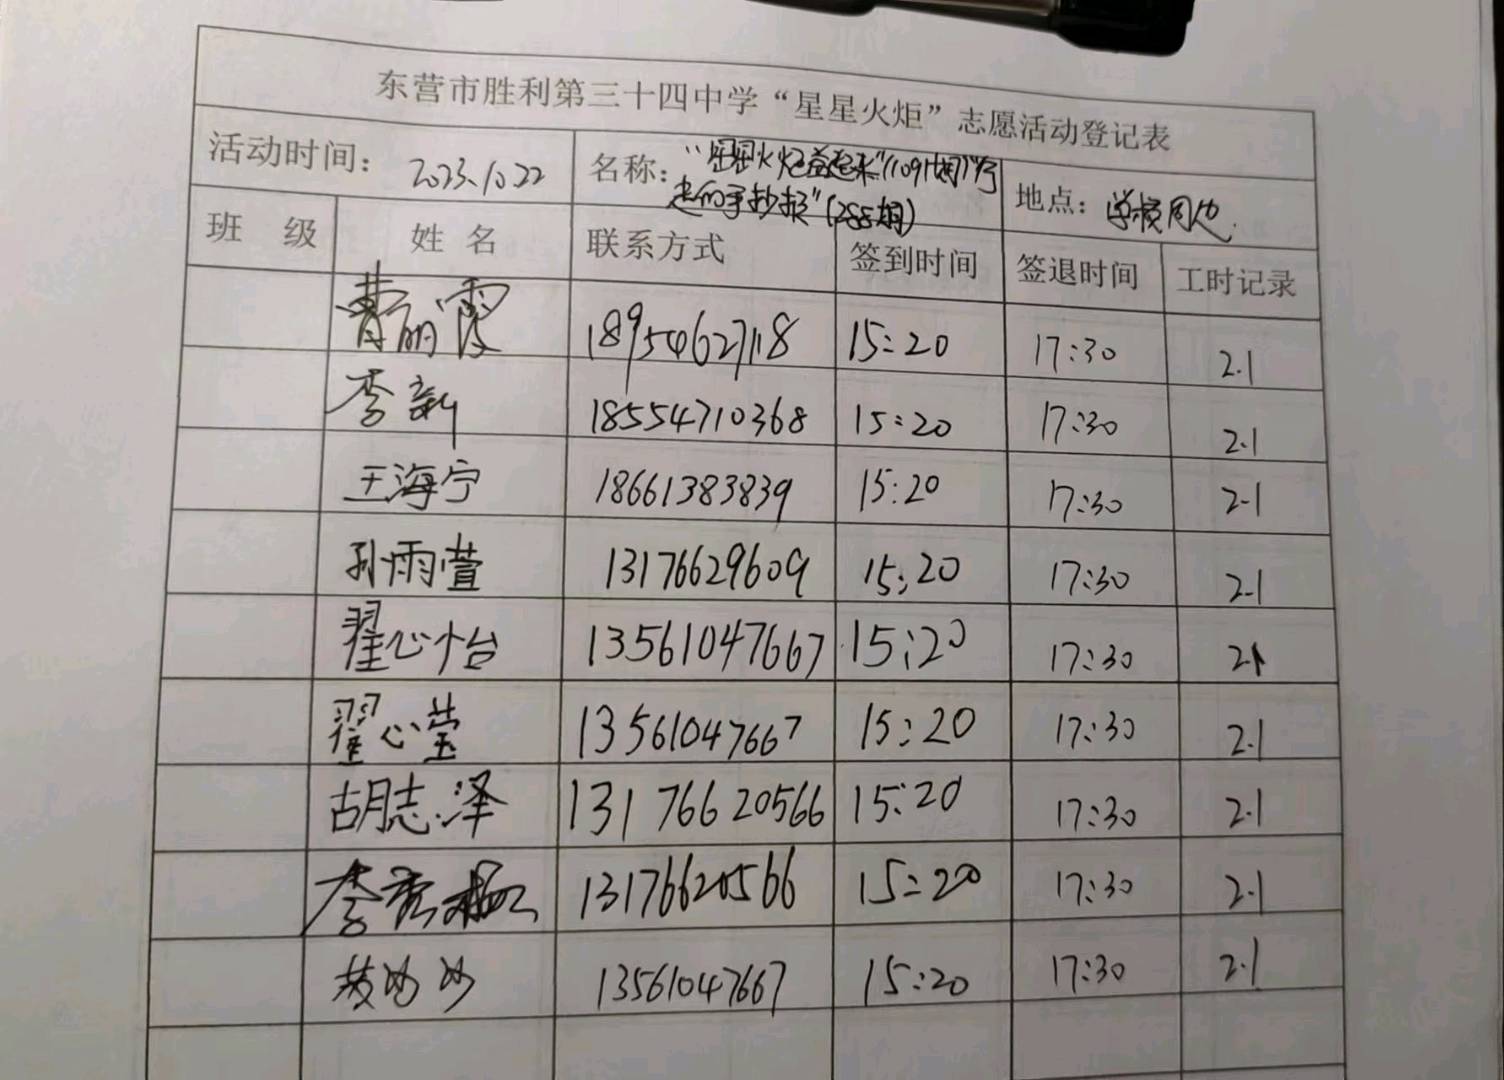 东营市胜利第三十四中学“星星火炬”志愿活动登记表
活动时间： 2023.10.22 名称：“星星火炬益起来”(1091期)“行 地点：学校周边.
走的手抄报”(288期)
班 级 姓 名 联系方式 签到时间 签退时间 工时记录
曹丽霞 18954627118 15:20 17:30 2.1
李新 18554710368 15:20 17:30 2.1
王海宁 18661383839 15:20 17:30 2.1
孙雨萱 13176629609 15:20 17:30 2.1
翟心怡 13561047667 15:20 17:30 2.1
翟心莹 13561047667 15:20 17:30 2.1
胡志泽 13176620566 15:20 17:30 2.1
李 13176620566 15:20 17:30 2.1
黄 13561047667 15:20 17:30 2.1